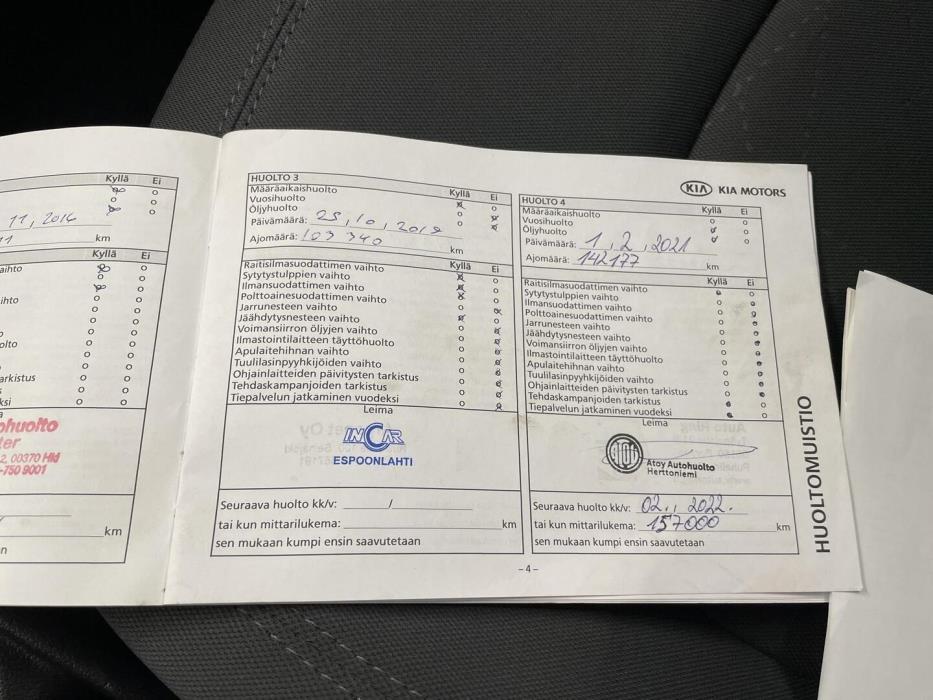 Kyllä Ei
11, 2016
km
Kyllä Ei
aihto
ihto
olto
arkistus
ksi
ohuolto
ter
2, 00370 HKI
-750 9001
km
n
HUOLTO 3
Kyllä Ei
Määräaikaishuolto
Vuosihuolto
Öljyhuolto
Päivämäärä: 25, 10, 2019
Ajomäärä: 103 340 km
Kyllä Ei
Raitisilmasuodattimen vaihto
Sytytystulppien vaihto
Ilmansuodattimen vaihto
Polttoainesuodattimen vaihto
Jarrunesteen vaihto
Jäähdytysnesteen vaihto
Voimansiirron öljyjen vaihto
Ilmastointilaitteen täyttöhuolto
Apulaitehihnan vaihto
Tuulilasinpyyhkijöiden vaihto
Ohjainlaitteiden päivitysten tarkistus
Tehdaskampanjoiden tarkistus
Tiepalvelun jatkaminen vuodeksi
Leima
INCAR
ESPOONLAHTI
Seuraava huolto kk/v: /
tai kun mittarilukema: km
sen mukaan kumpi ensin saavutetaan
KIA KIA MOTORS
HUOLTO 4
Kyllä Ei
Määräaikaishuolto
Vuosihuolto
Öljyhuolto
Päivämäärä: 1, 2, 2021
Ajomäärä: 142177 km
Kyllä Ei
Raitisilmasuodattimen vaihto
Sytytystulppien vaihto
Ilmansuodattimen vaihto
Polttoainesuodattimen vaihto
Jarrunesteen vaihto
Jäähdytysnesteen vaihto
Voimansiirron öljyjen vaihto
Ilmastointilaitteen täyttöhuolto
Apulaitehihnan vaihto
Tuulilasinpyyhkijöiden vaihto
Ohjainlaitteiden päivitysten tarkistus
Tehdaskampanjoiden tarkistus
Tiepalvelun jatkaminen vuodeksi
Leima
Atoy Autohuolto
Herttoniemi
Seuraava huolto kk/v: 02., 2022.
tai kun mittarilukema: 157000 km
sen mukaan kumpi ensin saavutetaan
HUOLTOMUISTIO
-4-